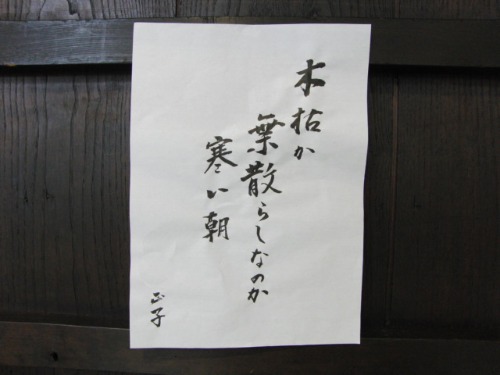 木枯か
葉散らしなのか
寒い朝
正子